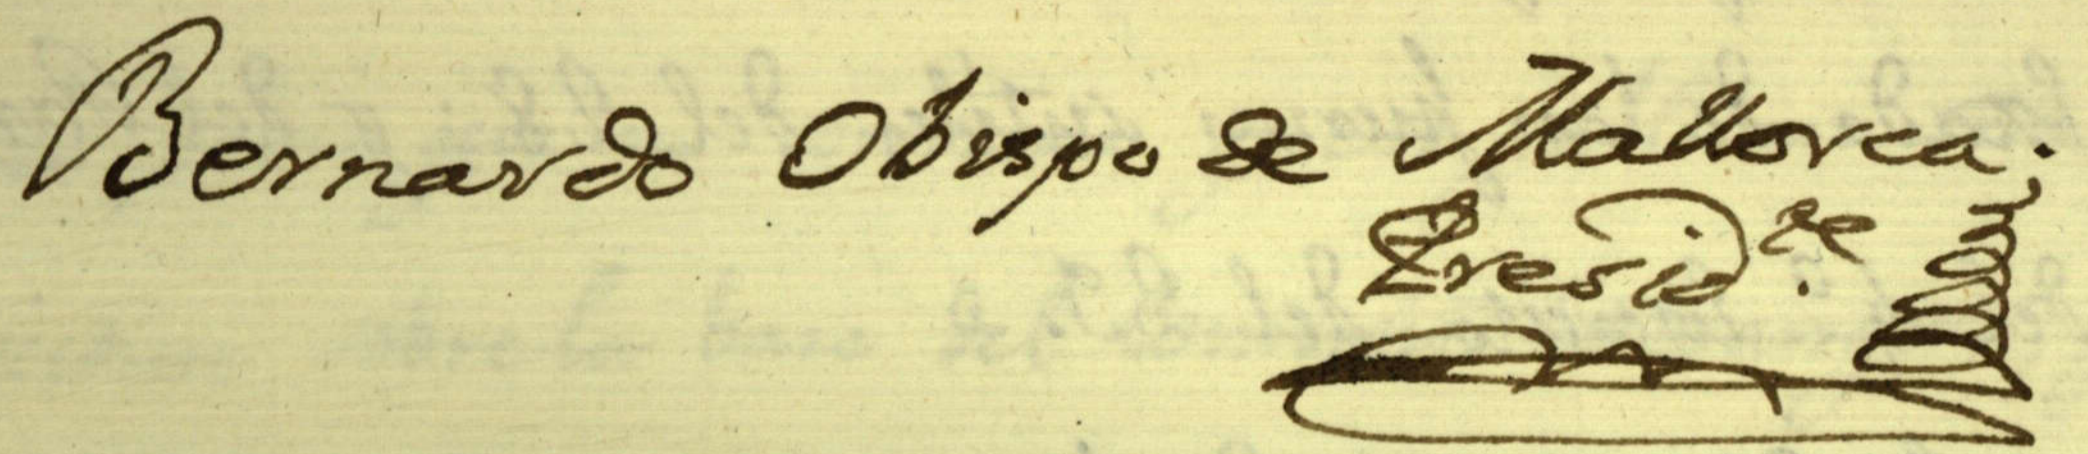 Bernardo Obispo de Mallorca.
Presid.te